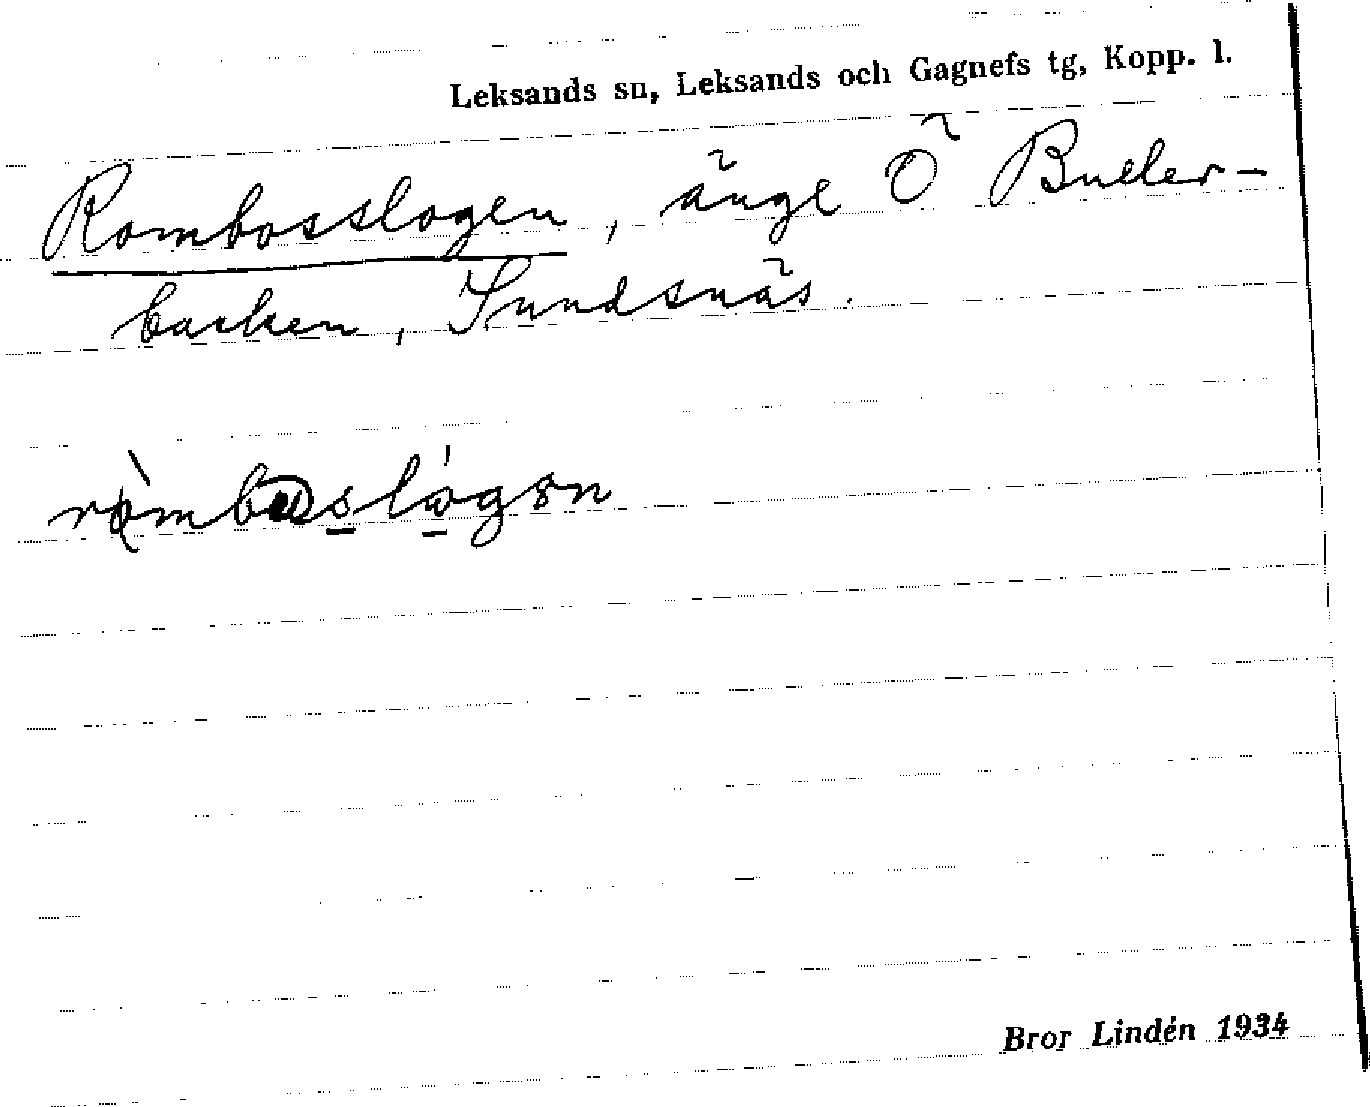 Leksands sn, Leksands och Gagnefs tg, Kopp. l.
Rombosslogen, änge Ö Buller-
backen, Sundsnäs.
Bror Lindén 1934